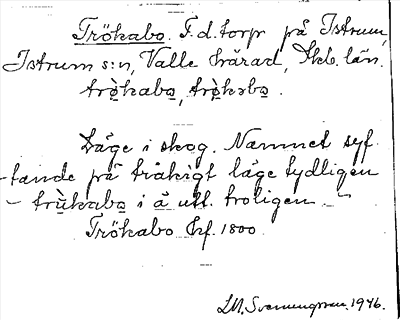 Trökabo. F.d. torp på Istrum,
Istrum s:n, Valle härad, Skb. län.
trökabo, trökabo.
Läge i skog. Namnet syf-
tande på tråkigt läge tydligen
- trùkabo i å utt. troligen. -
Trökabo Hf. 1800.
1946.